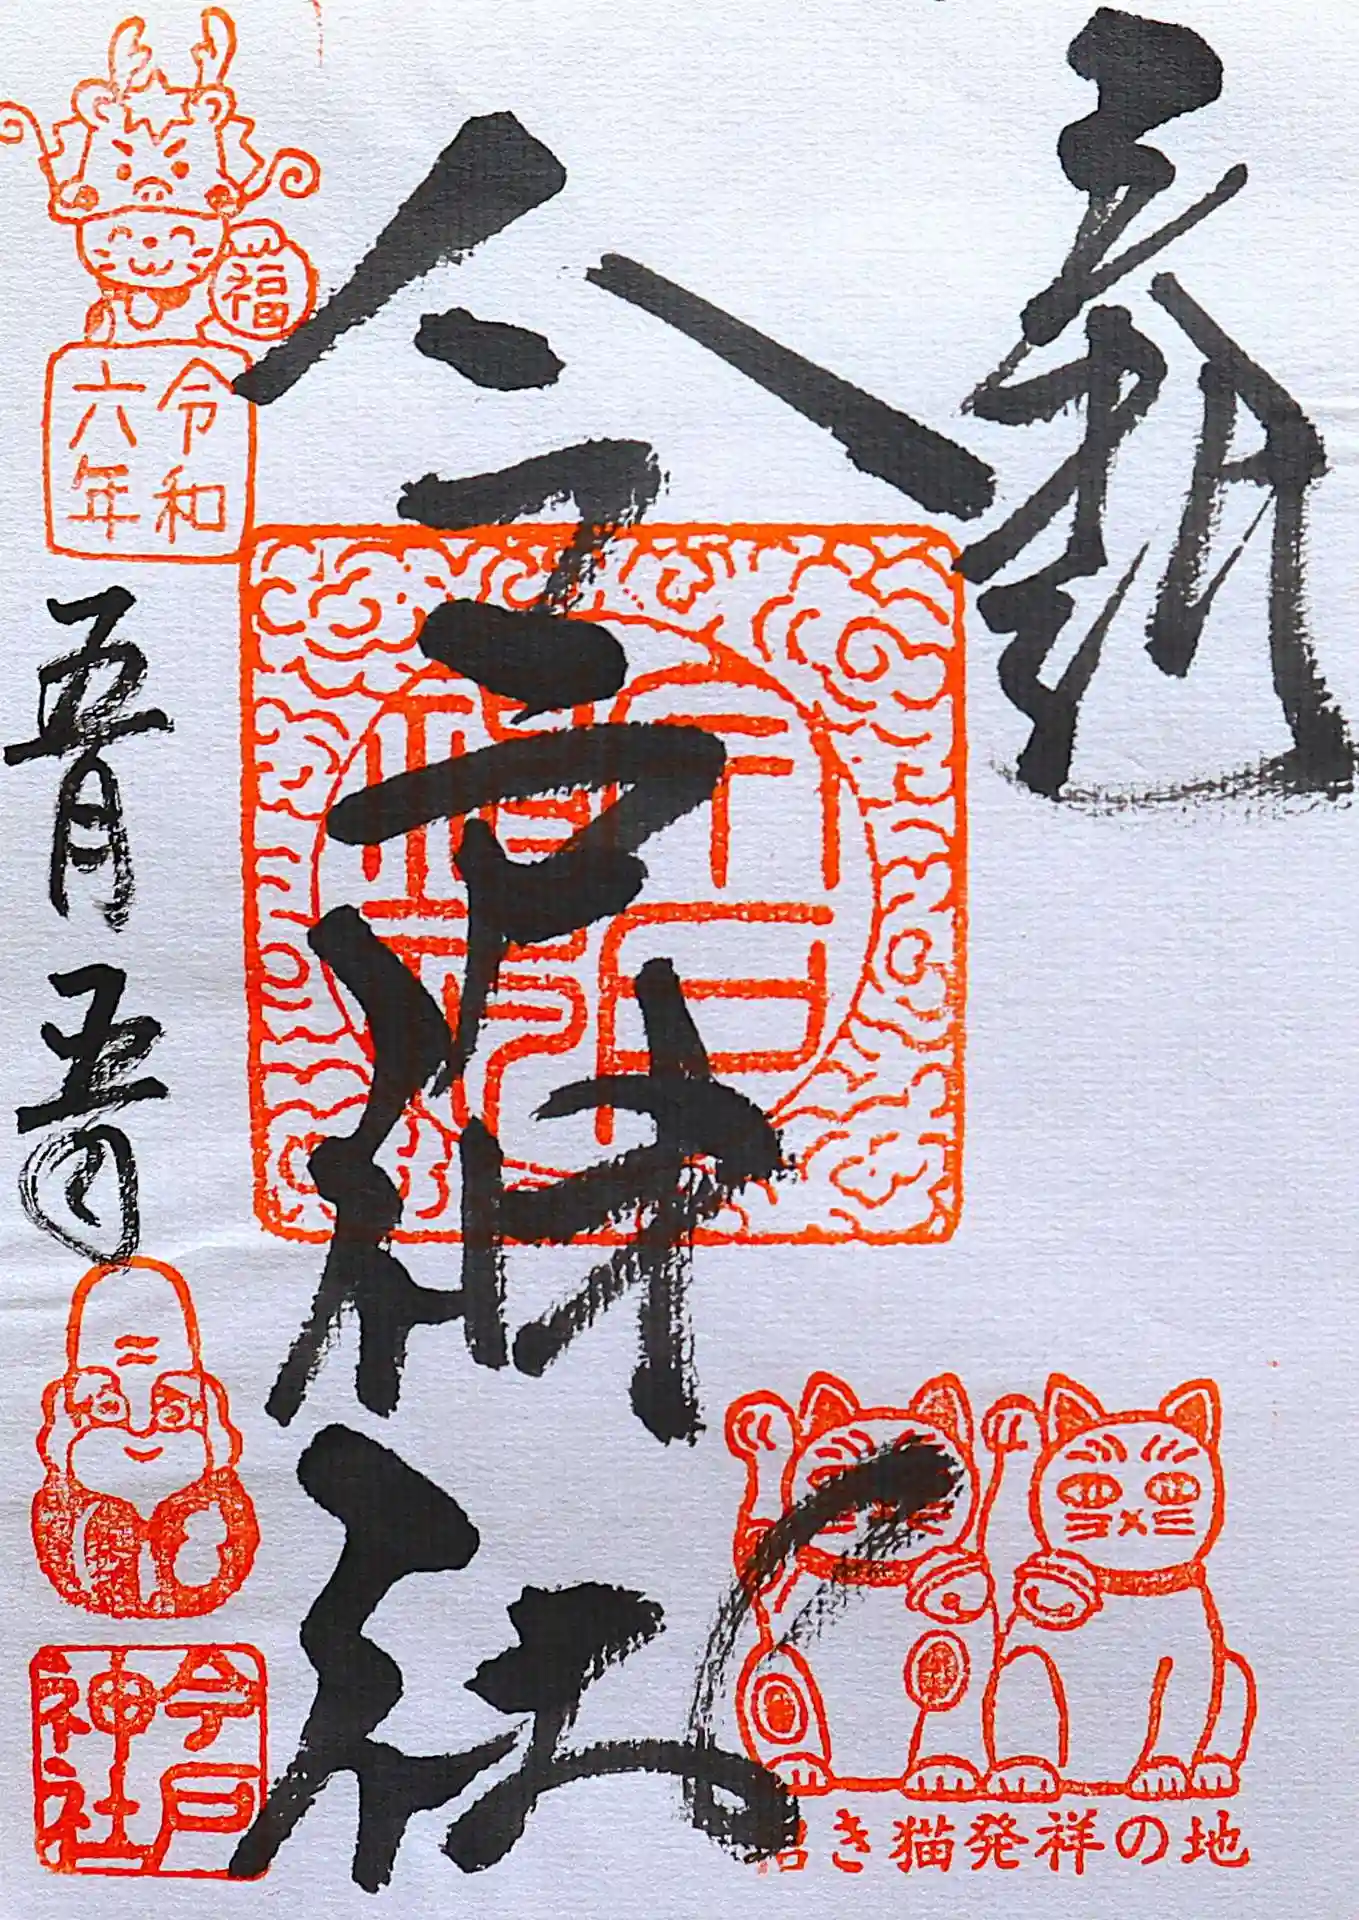 奉拝
今戸神社
福
令和
六年
五月
五日
今戸
神社
招き猫発祥の地